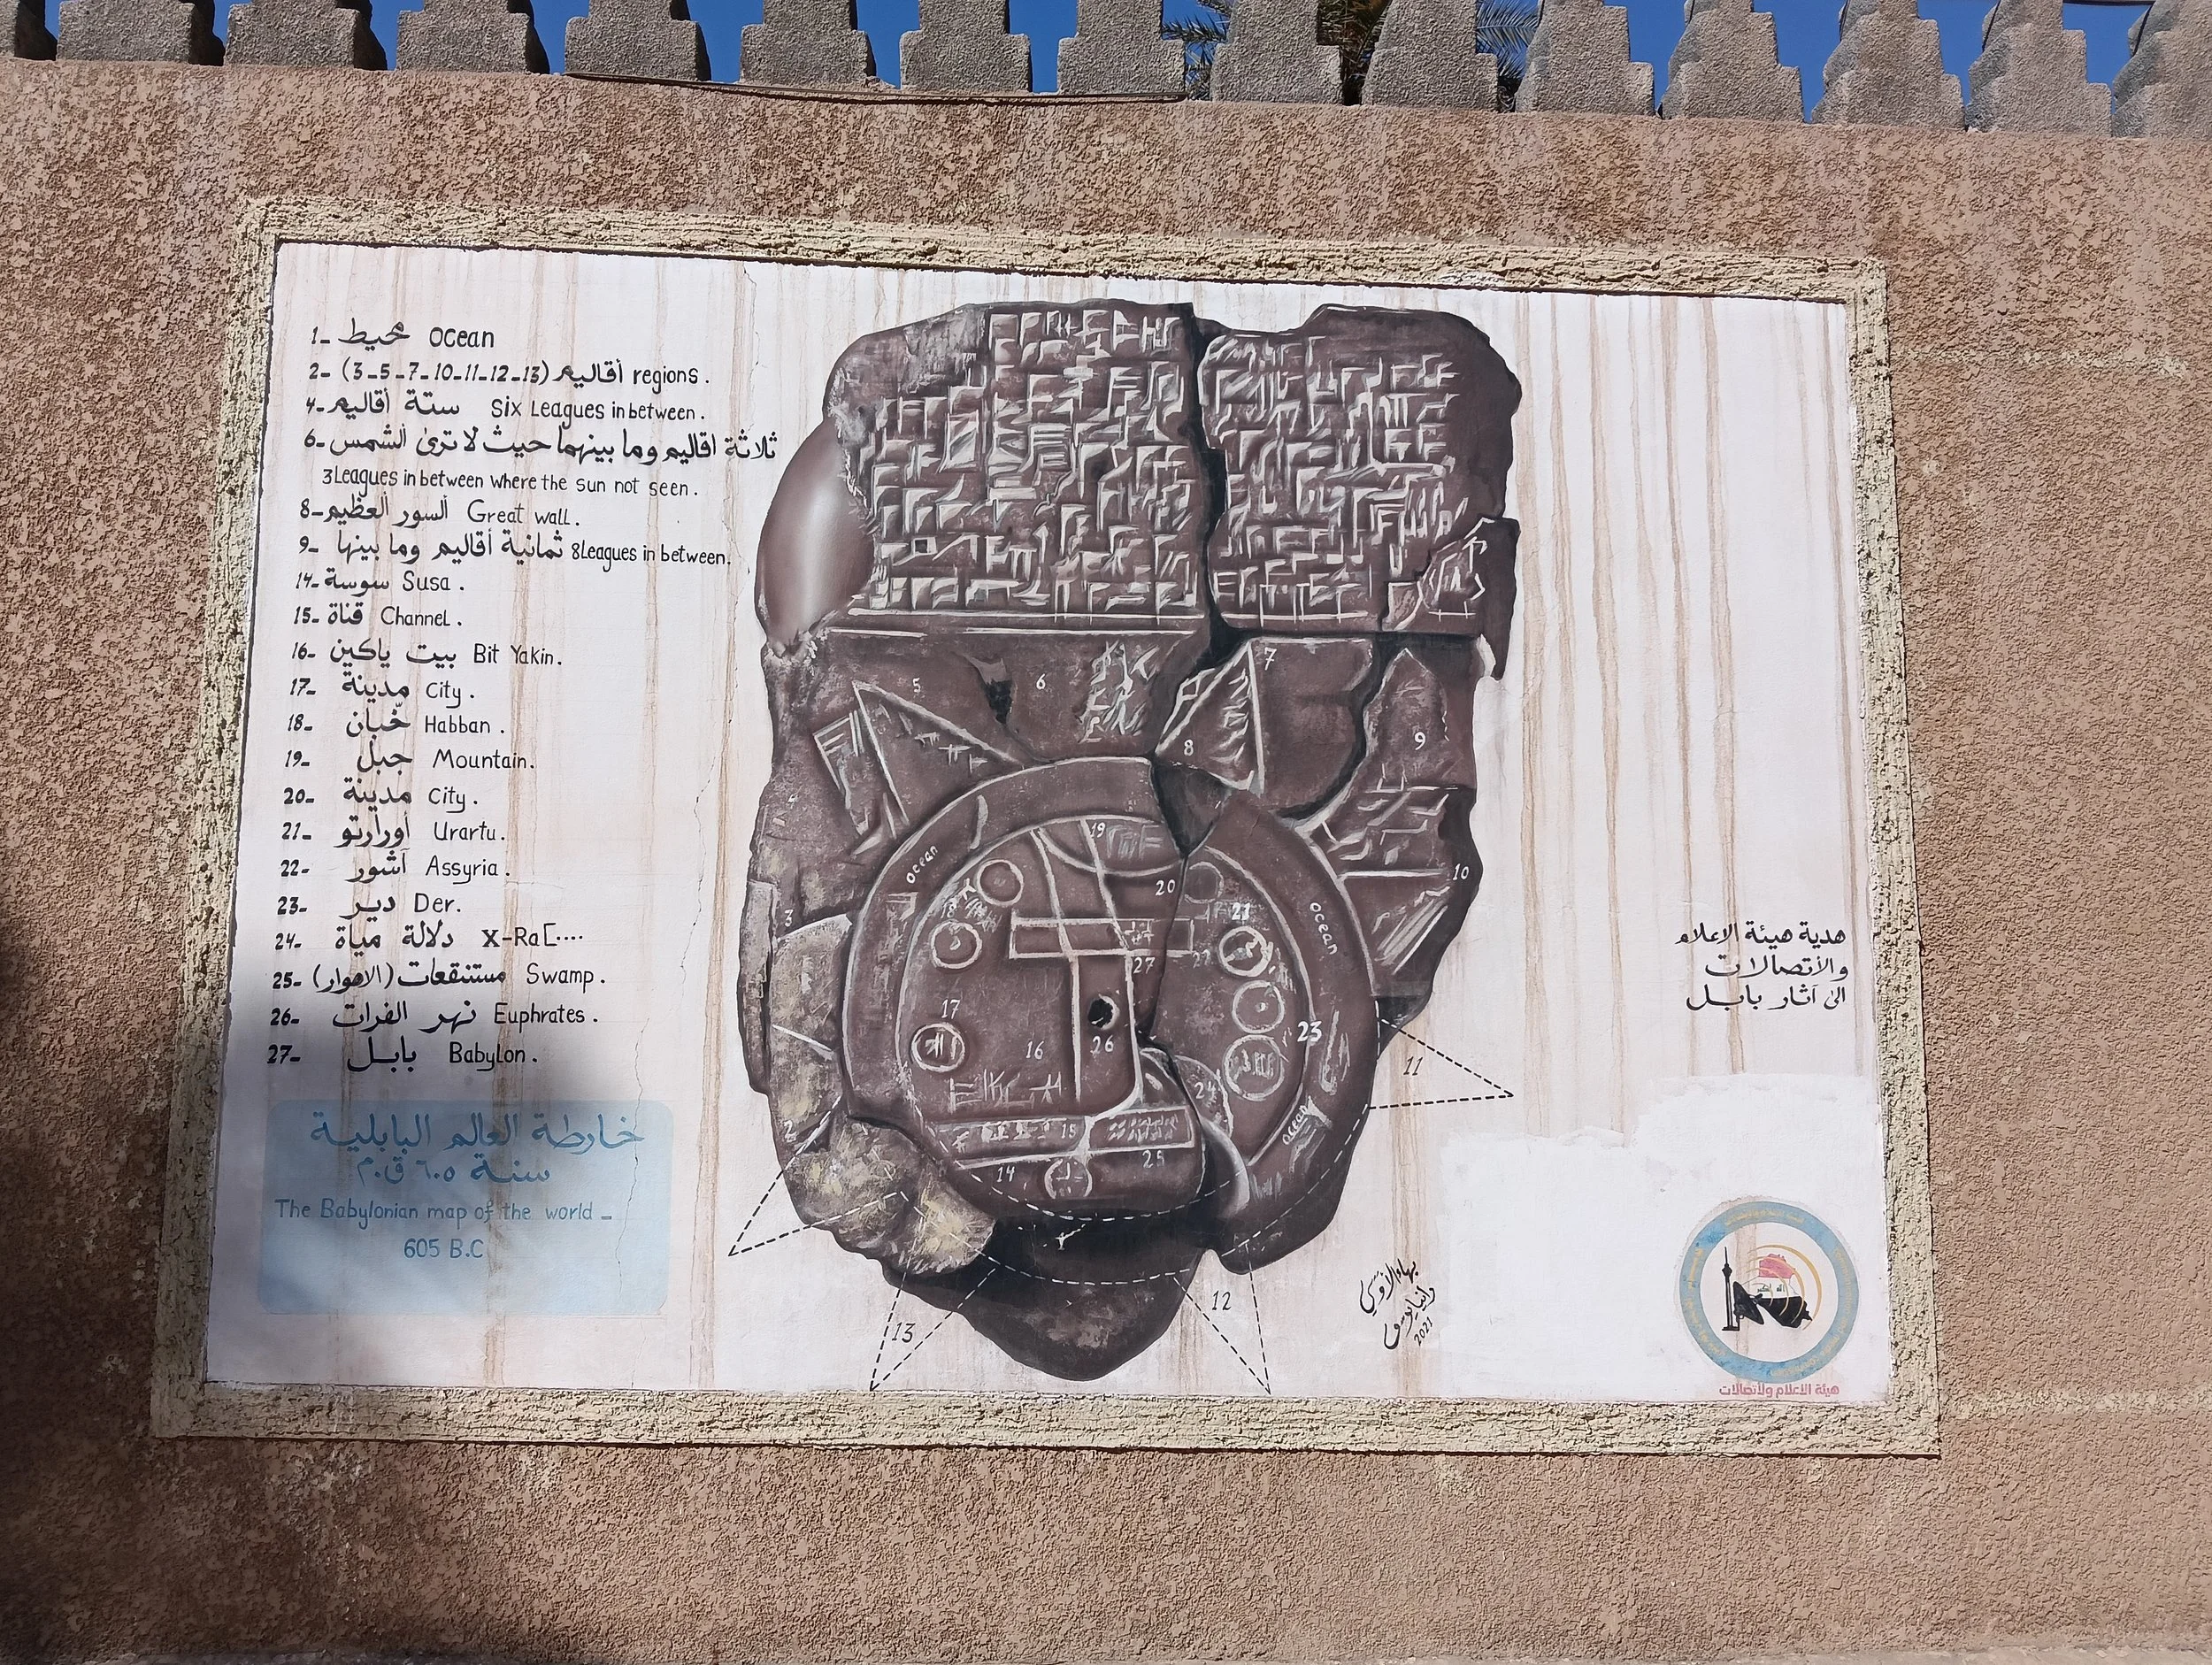 1- محيط ocean
2- (3-5-7-10-11-12-13) أقاليم regions.
4- ستة أقاليم Six Leagues in between.
6- ثلاثة اقاليم وما بينهما حيث لا ترى الشمس
3 Leagues in between where the sun not seen.
8- السور العظيم Great wall.
9- ثمانية أقاليم وما بينها 8 Leagues in between.
14- سوسة Susa.
15- قناة Channel.
16- بيت ياكين Bit Yakin.
17- مدينة City.
18- خبان Habban.
19- جبل Mountain.
20- مدينة City.
21- أورارتو Urartu.
22- آشور Assyria.
23- دير Der.
24- دلالة مياة X-Ra[....
25- مستنقعات (الاهوار) Swamp.
26- نهر الفرات Euphrates.
27- بابل Babylon.
خارطة العالم البابلية
سنة ٦٠٥ ق.م
The Babylonian map of the world -
605 B.C
5
6
7
8
9
10
3
ocean
19
20
18
21
ocean
27
22
17
16
26
23
11
24
2
15
ocean
14
25
12
13
هدية هيئة الاعلام
والأتصالات
الى آثار بابل
بهاء الأوسي
2021
هيئة الأعلام ولأتصالات